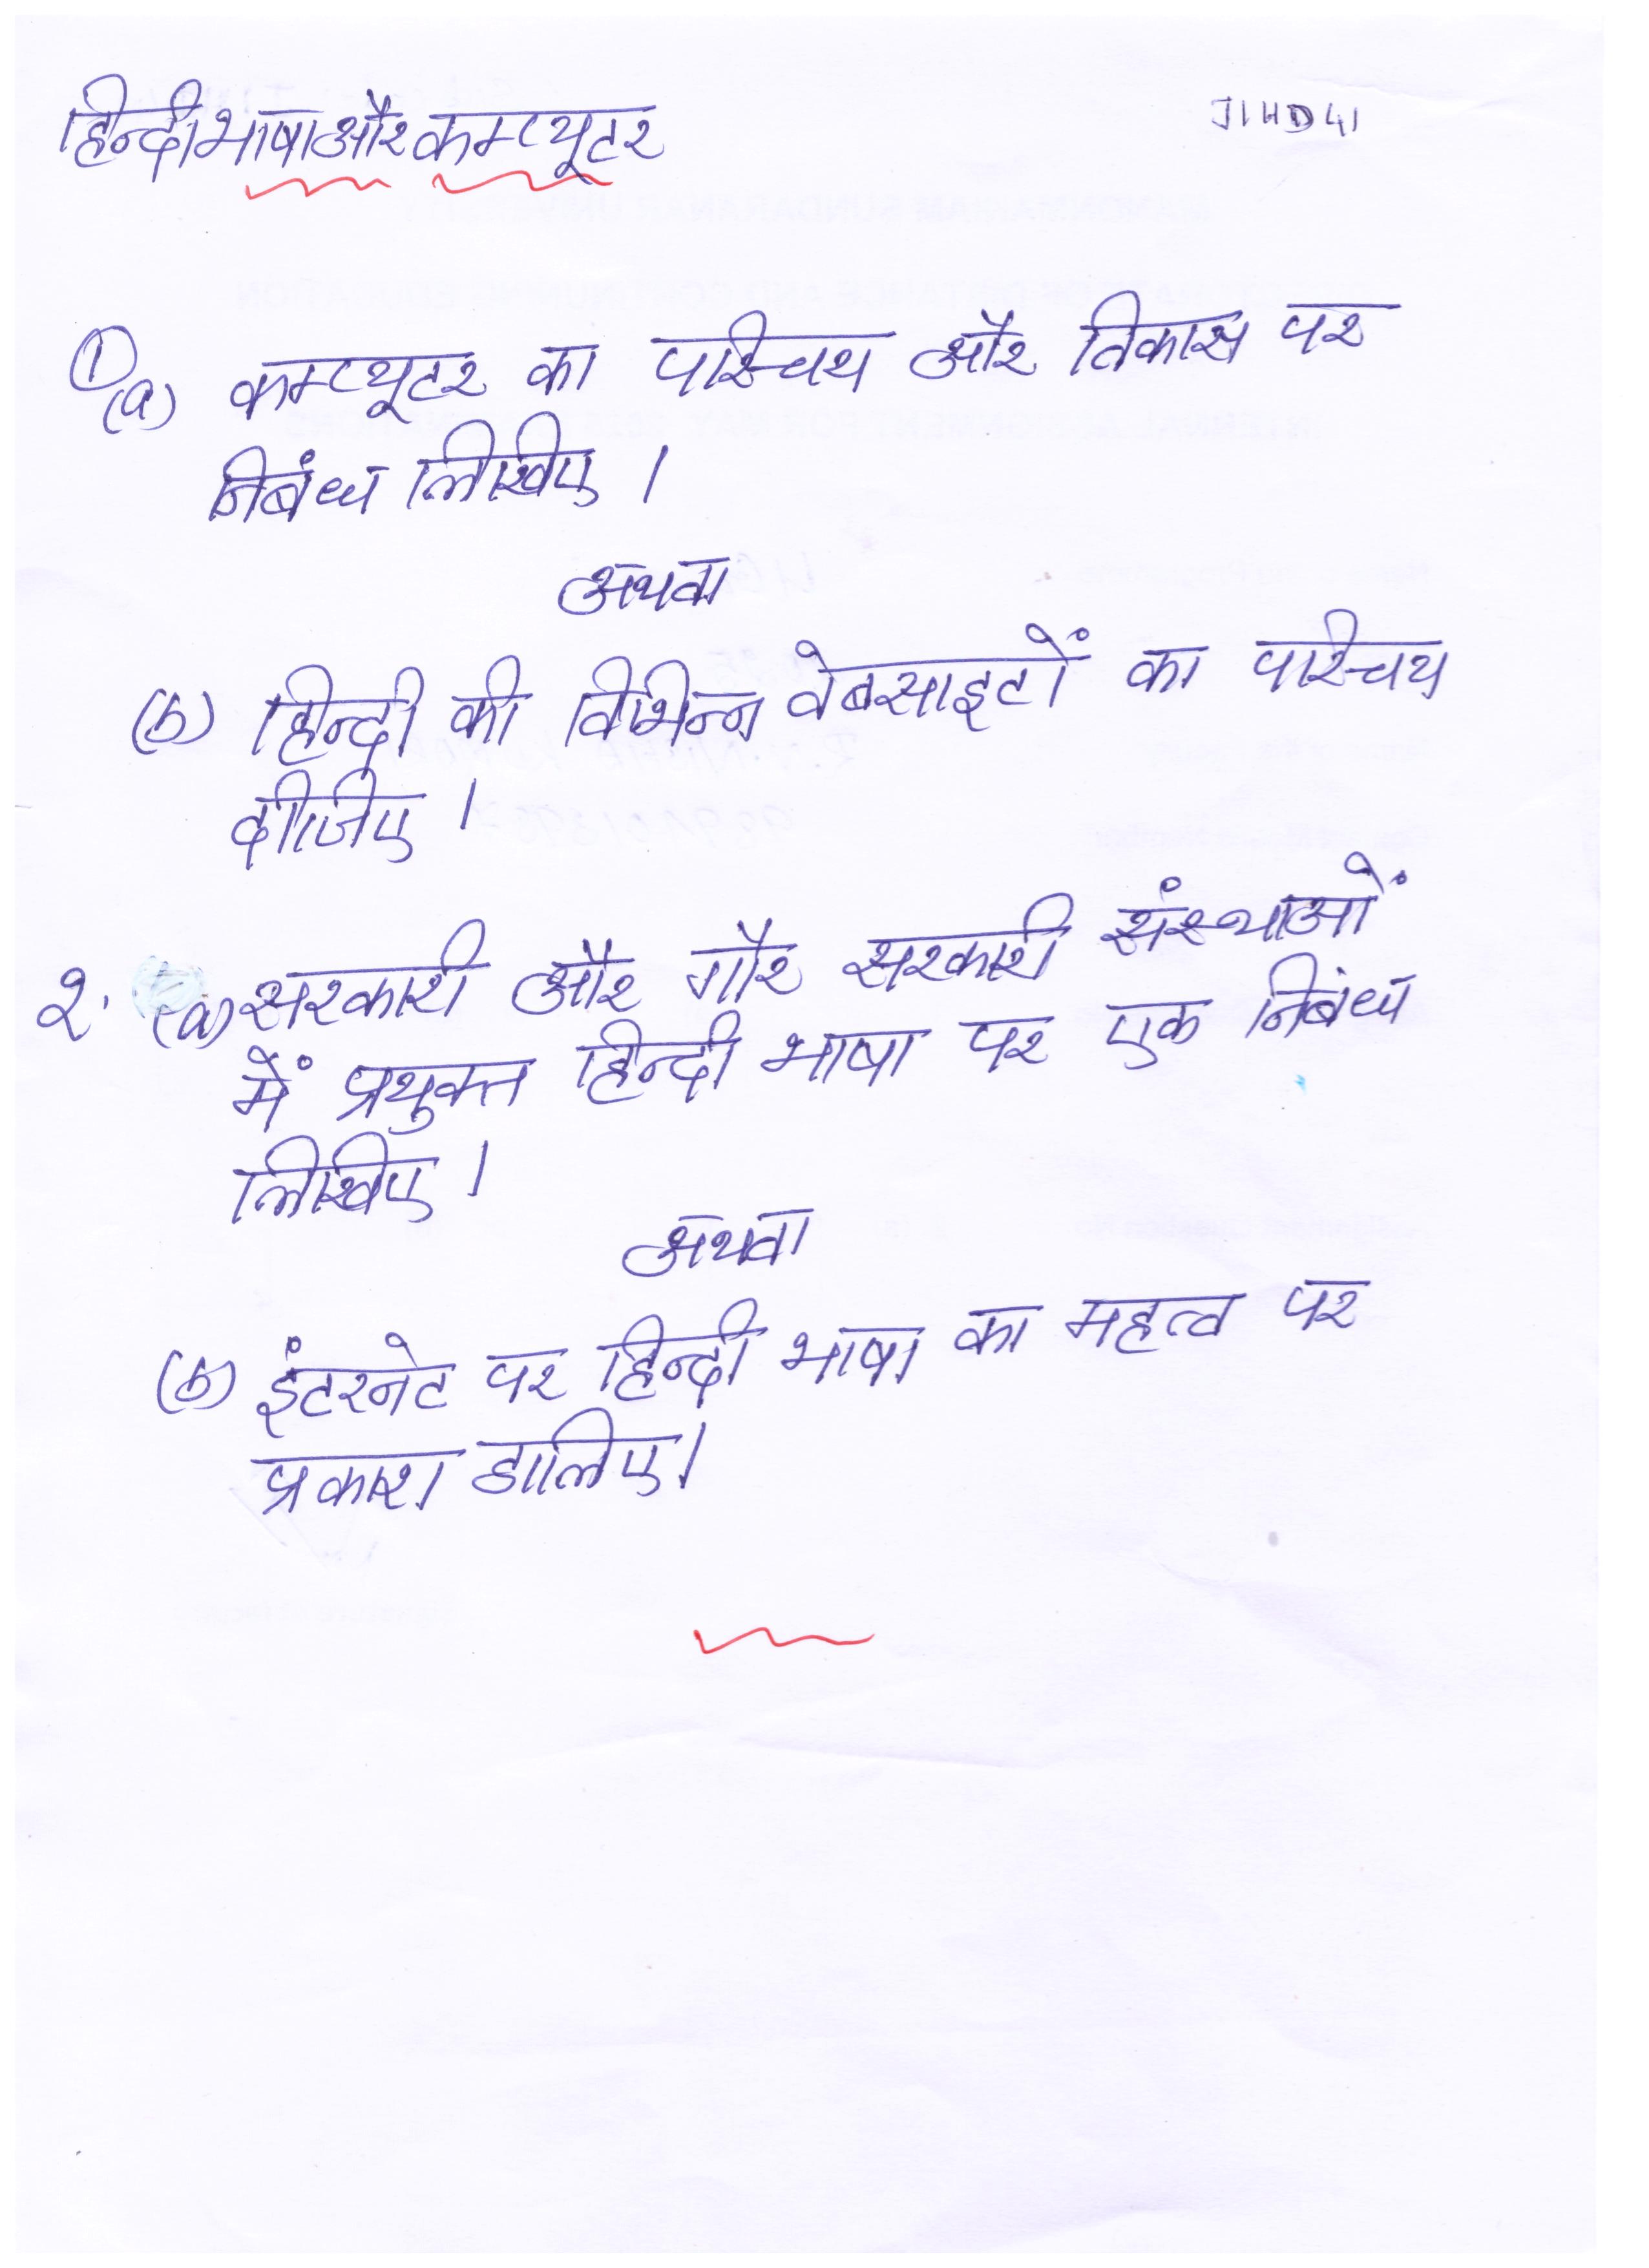 हिन्दी भाषा और कम्प्यूटर
J1HD41
① (a) कम्प्यूटर का परिचय और विकास पर
निबंध लिखिए ।
अथवा
(b) हिन्दी की विभिन्न वेबसाइटों का परिचय
दीजिए ।
२. (a) सरकारी और गौर सरकारी संस्थाओं
में प्रयुक्त हिन्दी भाषा पर एक निबंध
लिखिए ।
अथवा
(b) इंटरनेट पर हिन्दी भाषा का महत्व पर
प्रकाश डालिए।